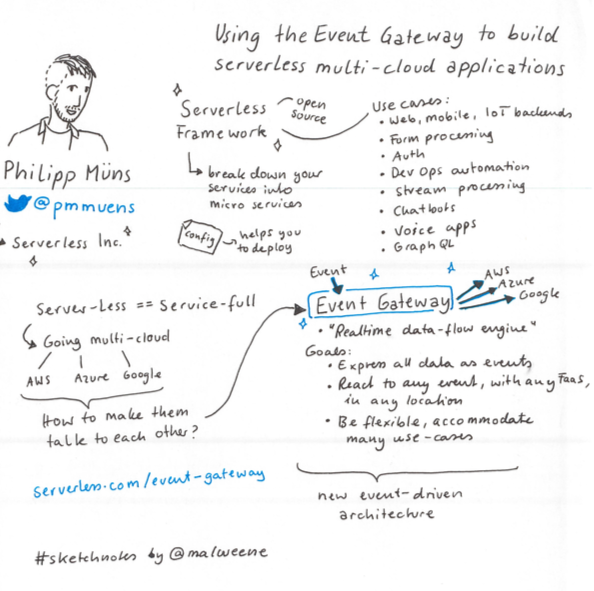 Using the Event Gateway to build
serverless multi-cloud applications
Philipp Müns
@pmmuens
Serverless Inc.
Serverless
Framework
open
source
break down your
services into
micro services
config
helps you
to deploy
Use cases:
• Web, mobile, IoT backends
• Form processing
• Auth
• Dev Ops automation
• Stream processing
• Chatbots
• Voice apps
• Graph QL
Server-Less == Service-full
Going multi-cloud
AWS Azure Google
How to make them
talk to each other?
serverless.com/event-gateway
Event
Event Gateway
AWS
Azure
Google
• "Realtime data-flow engine"
Goals:
• Express all data as events
• React to any event, with any FaaS,
in any location
• Be flexible, accommodate
many use-cases
new event-driven
architecture
#sketchnotes by @malweene